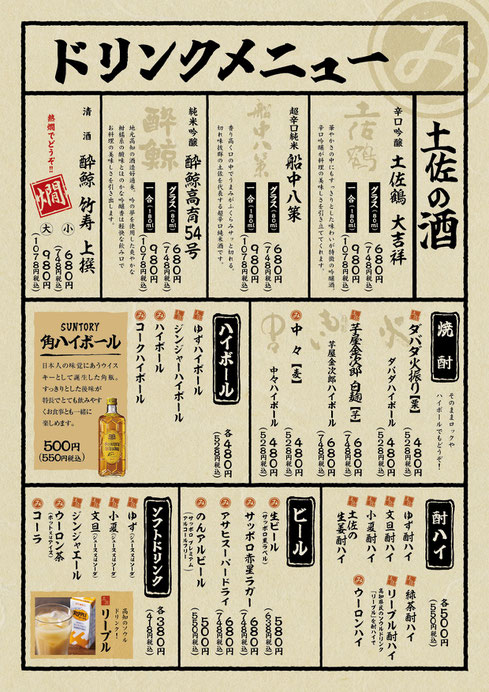 ドリンクメニュー
み
土佐の酒
辛口吟醸 土佐鶴 大吉祥
土佐鶴
華やかさの中にもすっきりとした味わいが特徴の吟醸酒。
辛口吟醸が料理の美味しさを引き立ててくれます。
グラス(80ml) 680円
(748円税込)
一合(180ml) 980円
(1078円税込)
超辛口純米 船中八策
船中八策
香り高く口の中でうまみがふくらみサッと切れる。
切れ味抜群の土佐を代表する超辛口純米酒です。
グラス(80ml) 680円
(748円税込)
一合(180ml) 980円
(1078円税込)
純米吟醸 酔鯨高育54号
酔鯨
地元高知の酒造好適米、吟の夢を使用した爽やかな
柑橘系の酸味とほのかな吟醸香は軽快な飲み口で
お料理の美味しさを引き出します。
グラス(80ml) 680円
(748円税込)
一合(180ml) 980円
(1078円税込)
清酒 酔鯨 竹寿 上撰
熱燗でどうぞ!!
燗
小 680円
(748円税込)
大 980円
(1078円税込)
焼酎
そのままロックや
ハイボールでもどうぞ!
ダバダ火振り【栗】 480円
(528円税込)
ダバダハイボール 480円
(528円税込)
芋屋金次郎 白麹【芋】 680円
(748円税込)
芋屋金次郎ハイボール 680円
(748円税込)
み 中々【麦】 480円
(528円税込)
中々ハイボール 480円
(528円税込)
ハイボール
各480円
(528円税込)
ゆずハイボール
ジンジャーハイボール
み ハイボール
み コークハイボール
SUNTORY
角ハイボール
日本人の味覚にあうウイス
キーとして誕生した角瓶。
すっきりとした後味が
特長でとても飲みやす
くお食事とも一緒に
楽しめます。
500円
(550円税込)
酎ハイ
各500円
(550円税込)
ゆず酎ハイ
文旦酎ハイ
小夏酎ハイ
み 土佐の
生姜酎ハイ
緑茶酎ハイ
リープル酎ハイ
高知県民のソウルドリンク
「リープル」を酎ハイで
み ウーロンハイ
ビール
み 生ビール
(サッポロ黒ラベル)
580円
(638円税込)
サッポロ赤星ラガー 680円
(748円税込)
アサヒスーパードライ 680円
(748円税込)
のんアルビール
(サッポロ プレミアム
アルコールフリー)
500円
(550円税込)
ソフトドリンク
各380円
(418円税込)
ゆず(ジュースorソーダ)
小夏(ジュースorソーダ)
文旦(ジュースorソーダ)
ジンジャエール
み ウーロン茶
(ホットorアイス)
み コーラ
高知のソウル
ドリンク!
リープル